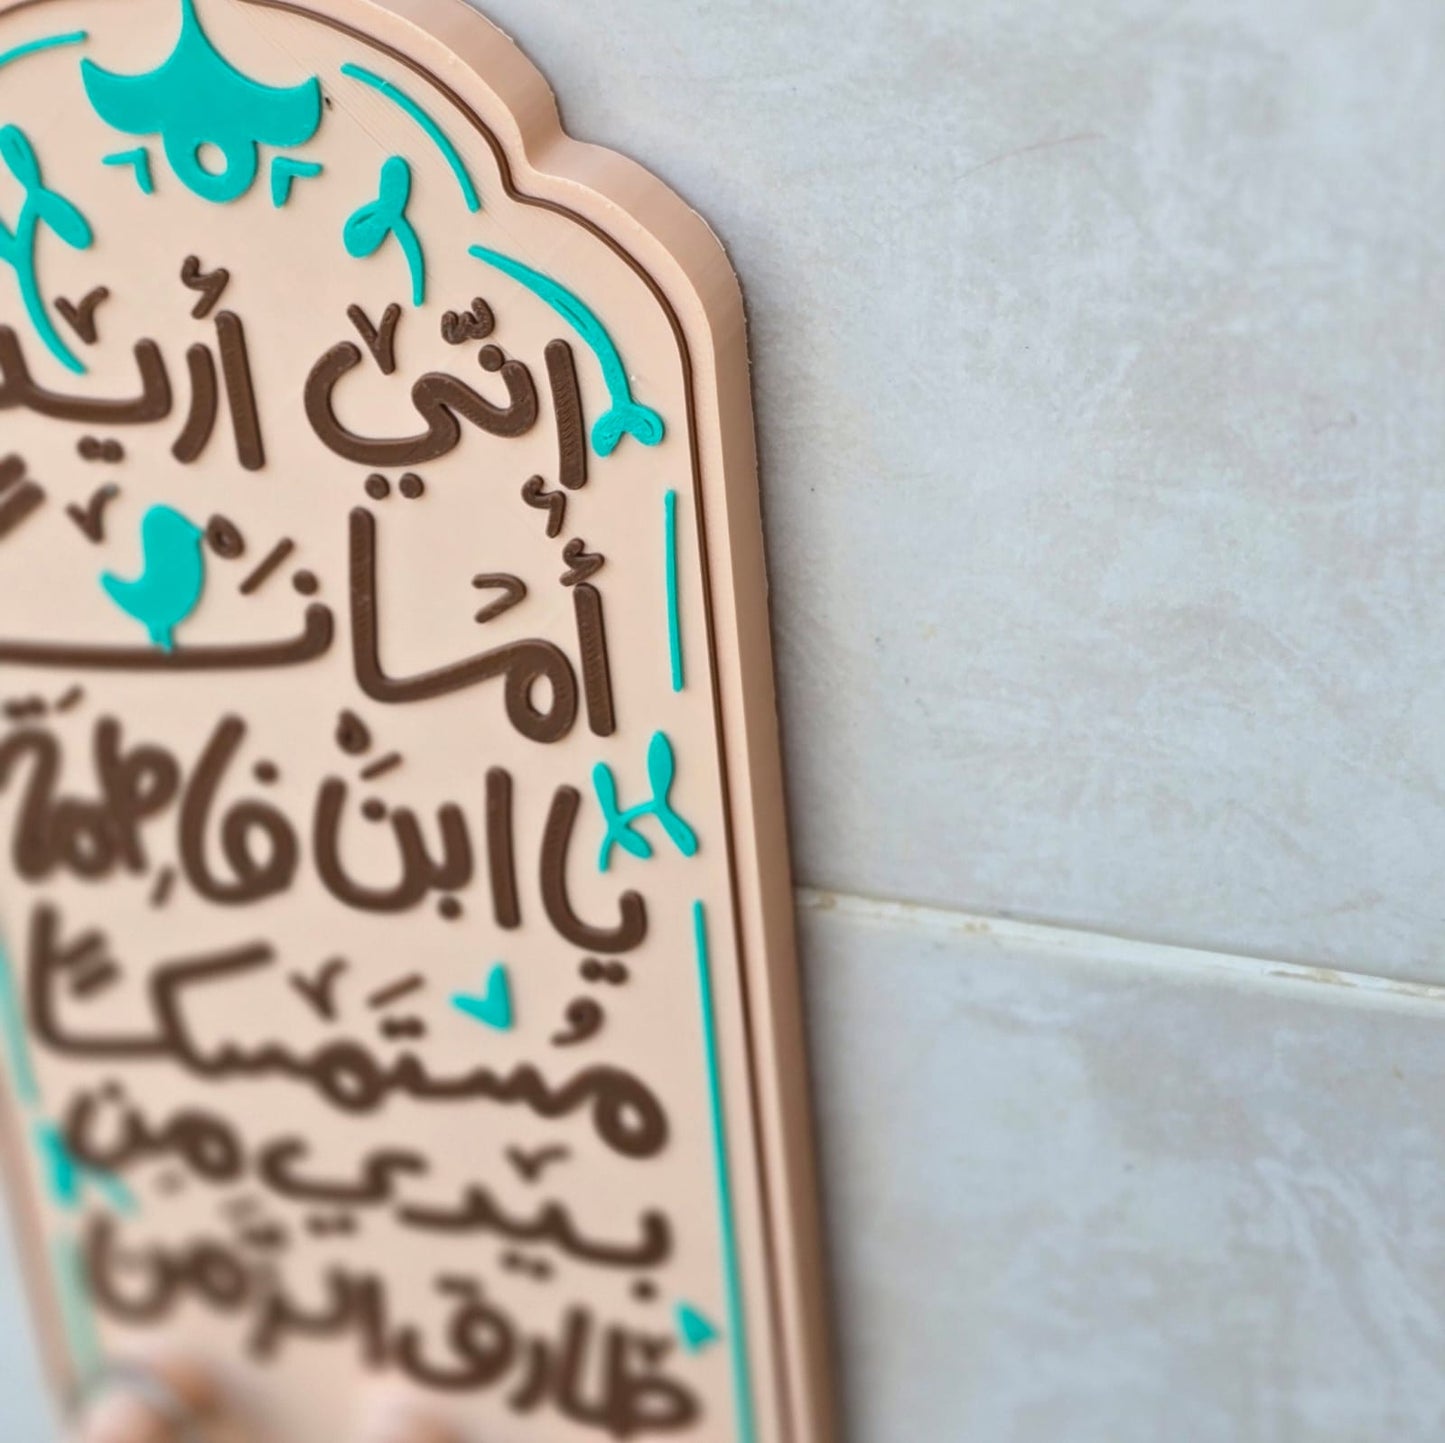 إنّي أريد
أمانًا
يا ابن فاطمة
مُستَمْسكًا
بيَدي مِن
طارق الزمن